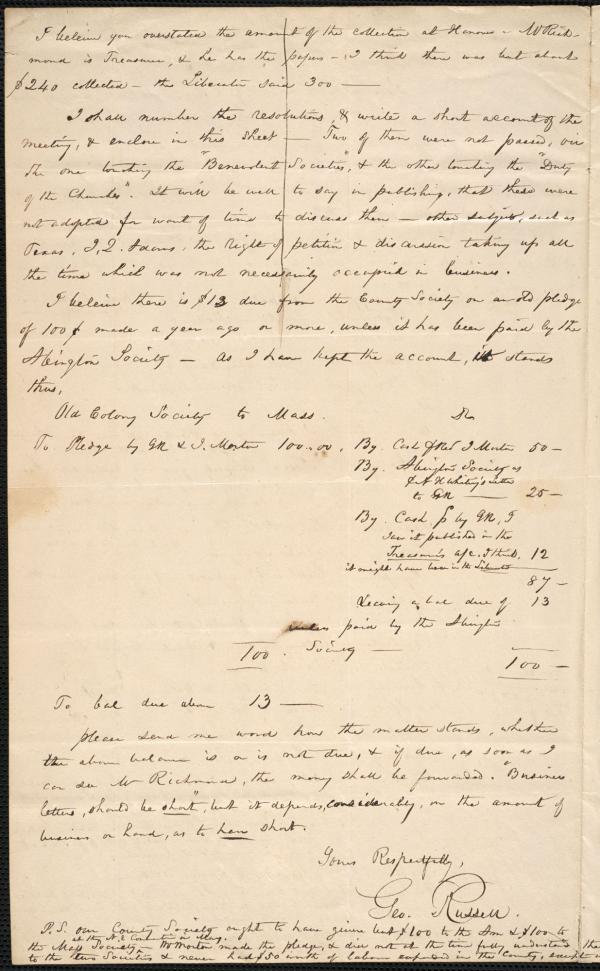 I beleive you overstated the amount of the collection at Hanover - Mr Rich-
mond is Treasurer, & he has the papers - I think there was but about
$240 collected - the Liberator said 300 -
I shall number the resolutions, & write a short account of the
meeting, & enclose in this sheet - Two of them were not passed, viz
the one touching the "Benevolent Societies", & the other touching the "Duty
of the Churches". It will be well to say in publishing, that these were
not adopted for want of time to discuss them - other subjects, such as
Texas, J. Q. Adams, the Right of petition & discussion taking up all
the time which was not necessarily occupied in business.
I beleive there is $13 due from the County Society on an old pledge
of 100$ made a year ago or more, unless it has been paid by the
Abington Society - As I have kept the account, it stands
thus,
Old Colony Society to Mass. Dr
To Pledge by GR & J. Morton 100.00. By Cash of Rev J Morton 50 -
By Abington Society as
A H Whiting's letter
to GR - 25 -
By Cash p by GR, I
saw it published in the
Treasurer's a/c, I think, 12
it might have been in the Liberator
87 -
Leaving a bal due of 13
unless paid by the Abington
100. Society -
100 -
To bal due above 13 -
please send me word how the matter stands, whether
the above balance is or is not due, & if due, as soon as I
can see Mr Richmond, the money shall be forwarded. "Business
letters, should be short", but it depends, considerably, on the amount
of
business on hand, as to how short.
Yours Respectfully,
Geo. Russell.
P.S. our County Society ought to have given but $100 to the Am & $100 to
at the N.E. Convention in May.
the Mass Society - Mr Morton made the pledge, & did not at the time fully understand the
to the two Societies & never had $50 worth of labour expended in the County, except